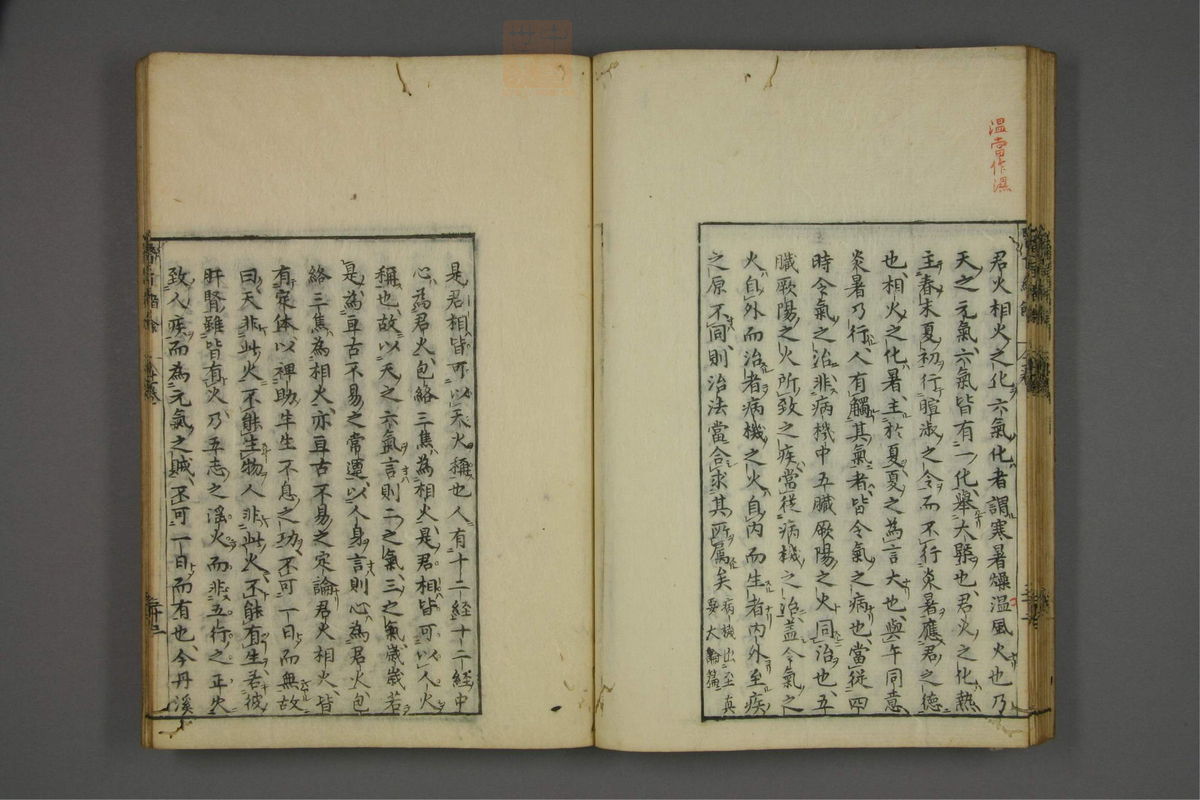 温當作濕
君火相火之化六氣化者謂寒暑燥温風火也乃
天之元氣六氣皆有一化舉大槩也君火之化熱
主春末夏初行暄淑之令而不行炎暑應君之德
也相火之化暑主於夏夏之為言大也與午同意
炎暑乃行人有觸其氣者皆令氣之病也當從四
時令氣之治非病機中五臟厥陽之火同治也五
臟厥陽之火所致之疾當從病機之治盖令氣之
火自外而治者病機之火自内而生者内外至疾
之原不同則治法當合求其所屬矣
病機出至真
要大論篇
是君相皆可以天火稱也人有十二経十二経中
心為君火包絡三焦為相火是君相皆可以人火
稱也故以天之六氣言則二之氣三之氣歲歲若
是為亘古不易之常運以人身言則心為君火包
絡三焦為相火亦亘古不易之定論君火相火皆
有定体以裨助生生不息之功不可一日而無故
曰天非此火不能生物人非此火不能有生若彼
肝腎雖皆有火乃五志之淫火而非五行之正火
致人疾而為元氣之賊不可一日而有也今丹溪